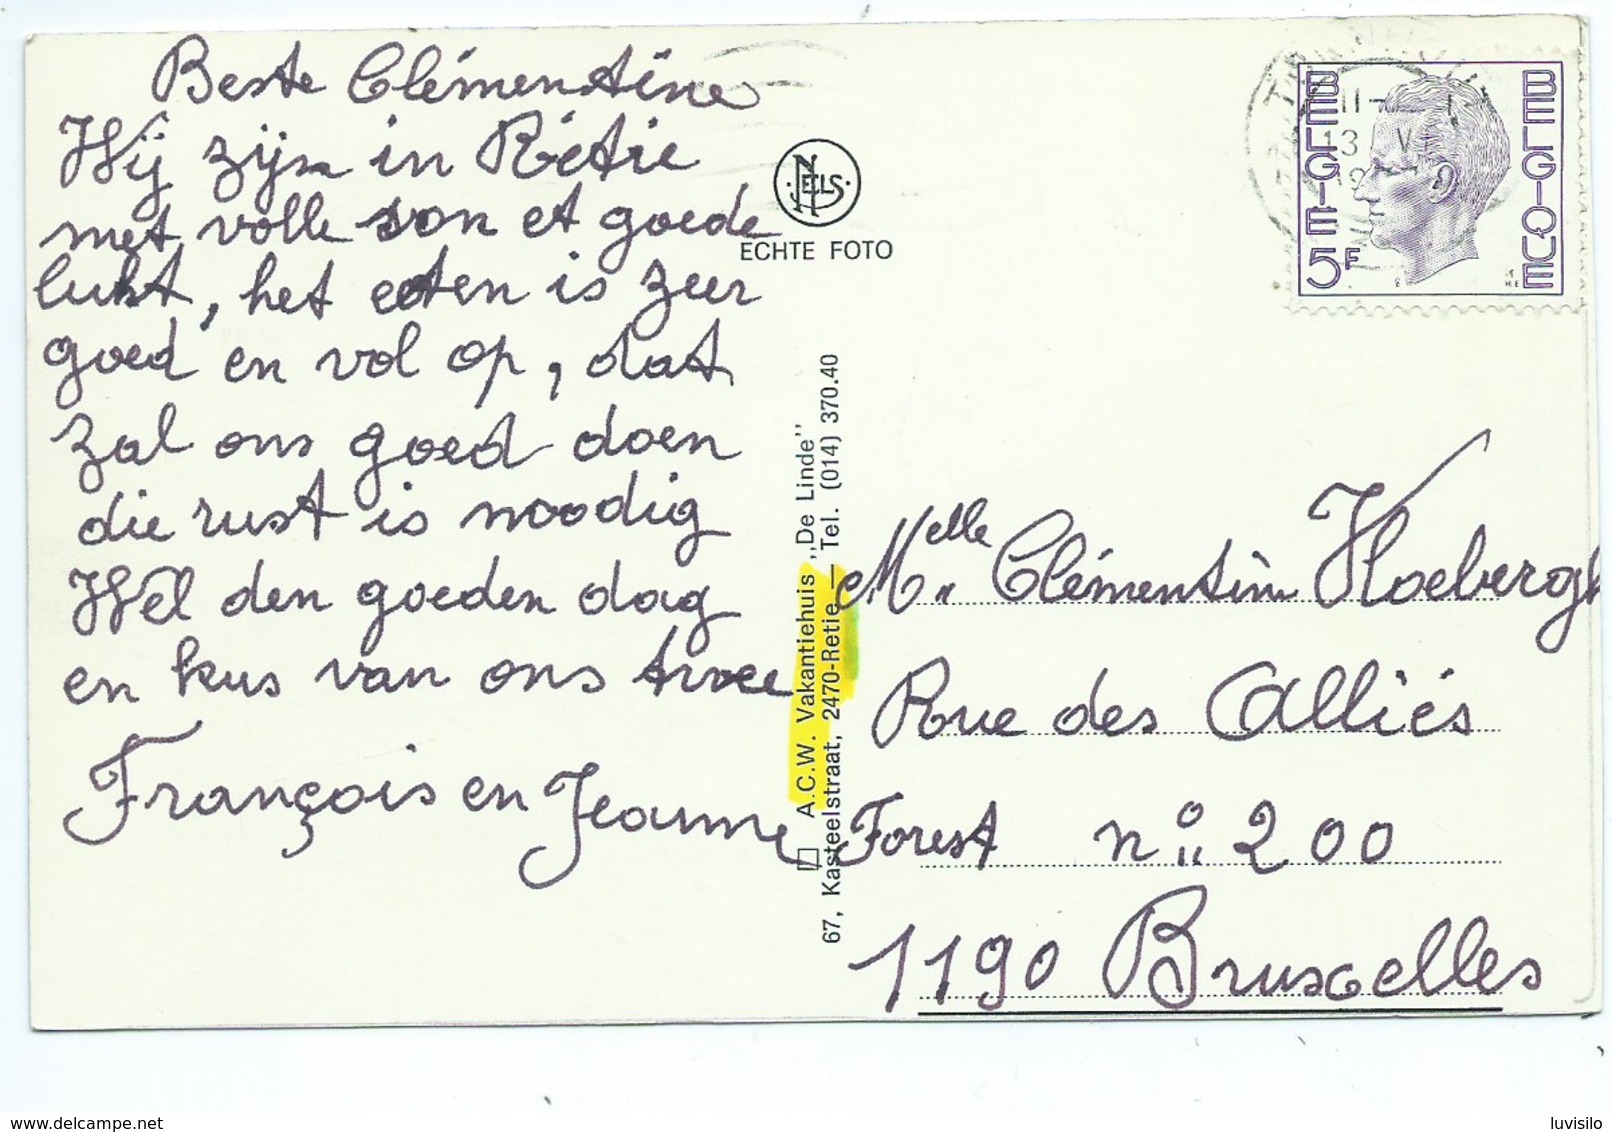 Beste Clémentine
Wij zijn in Rétie
met volle son et goede
lucht, het eten is zeer
goed en vol op, dat
zal ons goed doen
die rust is noodig
Wél den goeden dag
en kus van ons twee
François en Jeanne
NELS
ECHTE FOTO
A.C.W. Vakantiehuis „De Linde”
67, Kasteelstraat, 2470-Retie — Tel. (014) 370.40
13 VI
BELGIE 5F
BELGIQUE
Melle Clémentine Hoebergh
Rue des Alliés
Forest nº 200
1190 Bruxelles
luvisilo